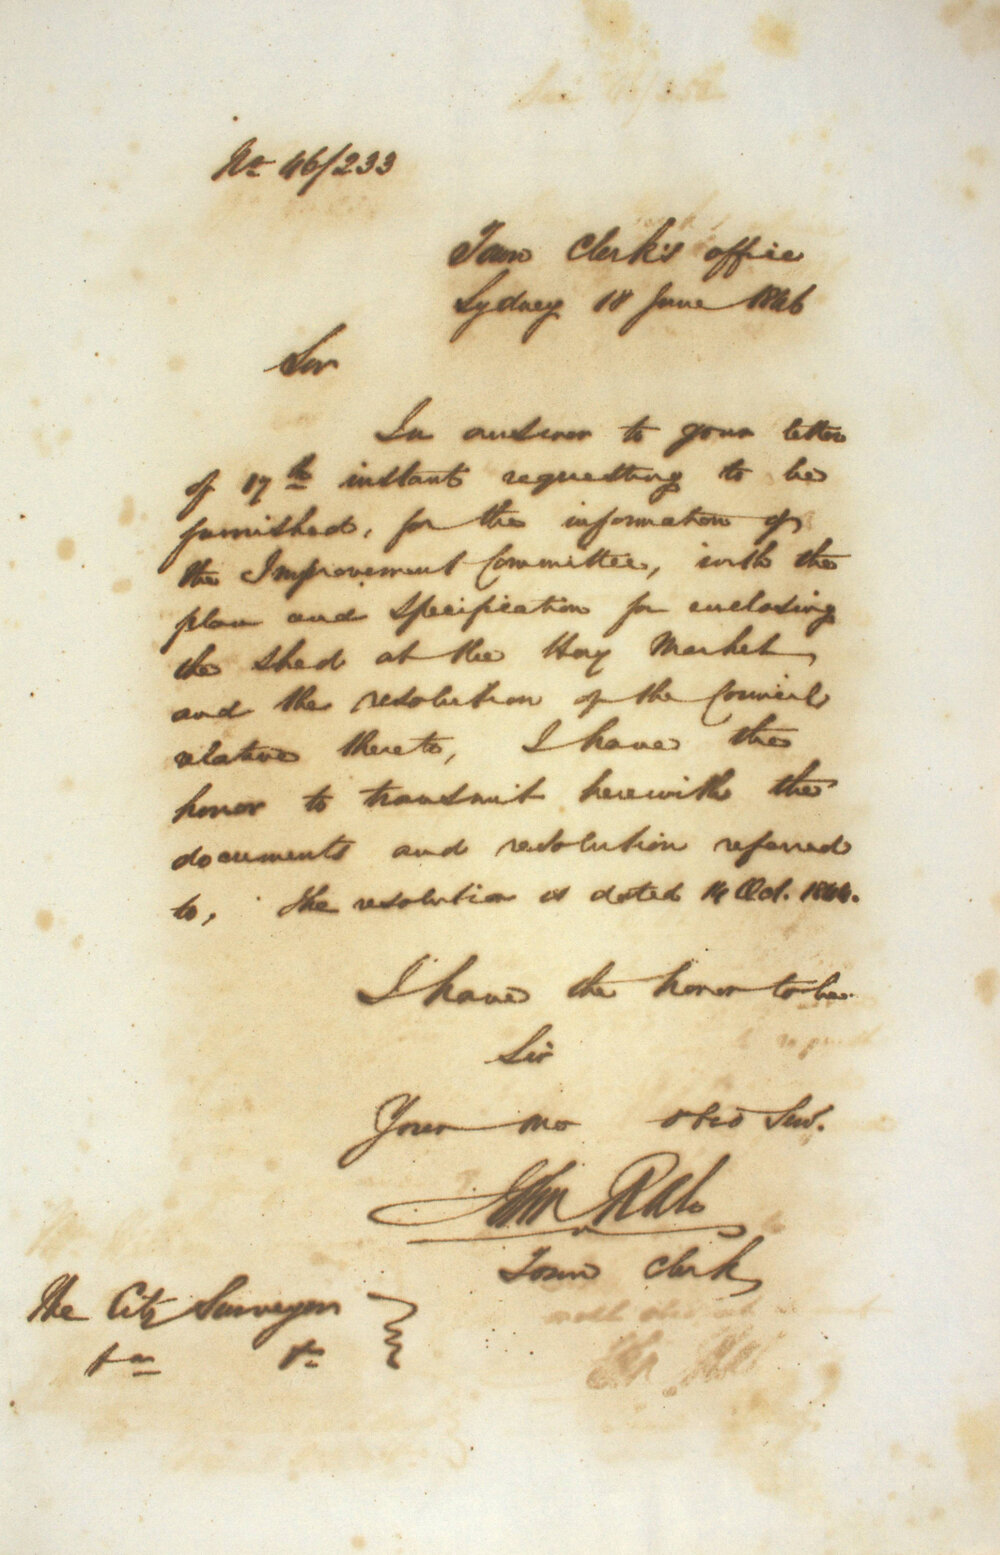 No 46/233
Town Clerk's office
Sydney 18 June 1846
Sir
In answer to your letter
of 17th instant requesting to be
furnished, for the information of
the Improvement Committee, with the
plan and specification for enclosing
the shed at the Hay Market
and the resolution of the Council
relative thereto, I have the
honor to transmit herewith the
documents and resolution referred
to, The resolution is dated 14 Oct. 1844.
I have the honor to be
Sir
Your mo obed Serv.
John Rae
Town Clerk
The City Surveyor